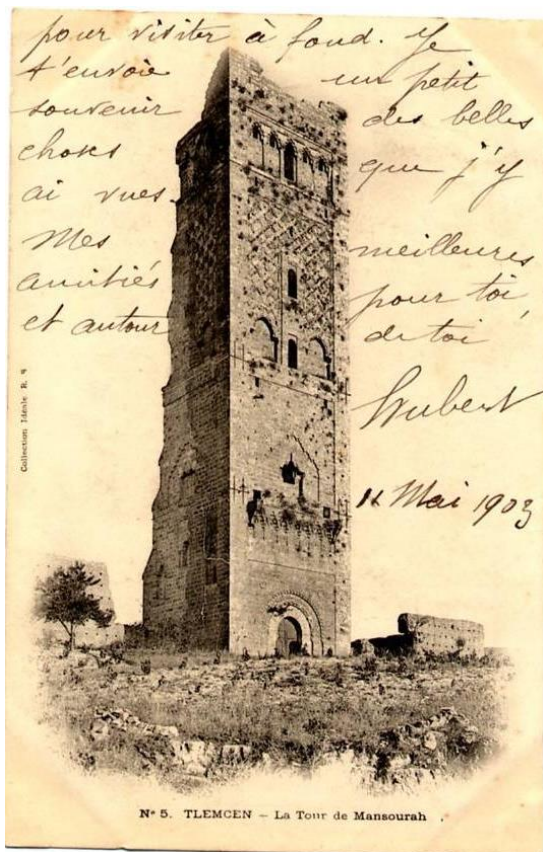 pour visiter à fond. Je
t'envoie un petit
souvenir des belles
choses que j'y
ai vues.
Mes meilleures
amitiés pour toi,
et autour de toi
Hubert
11 Mai 1903
Collection Idéale R. S
N° 5. TLEMCEN – La Tour de Mansourah